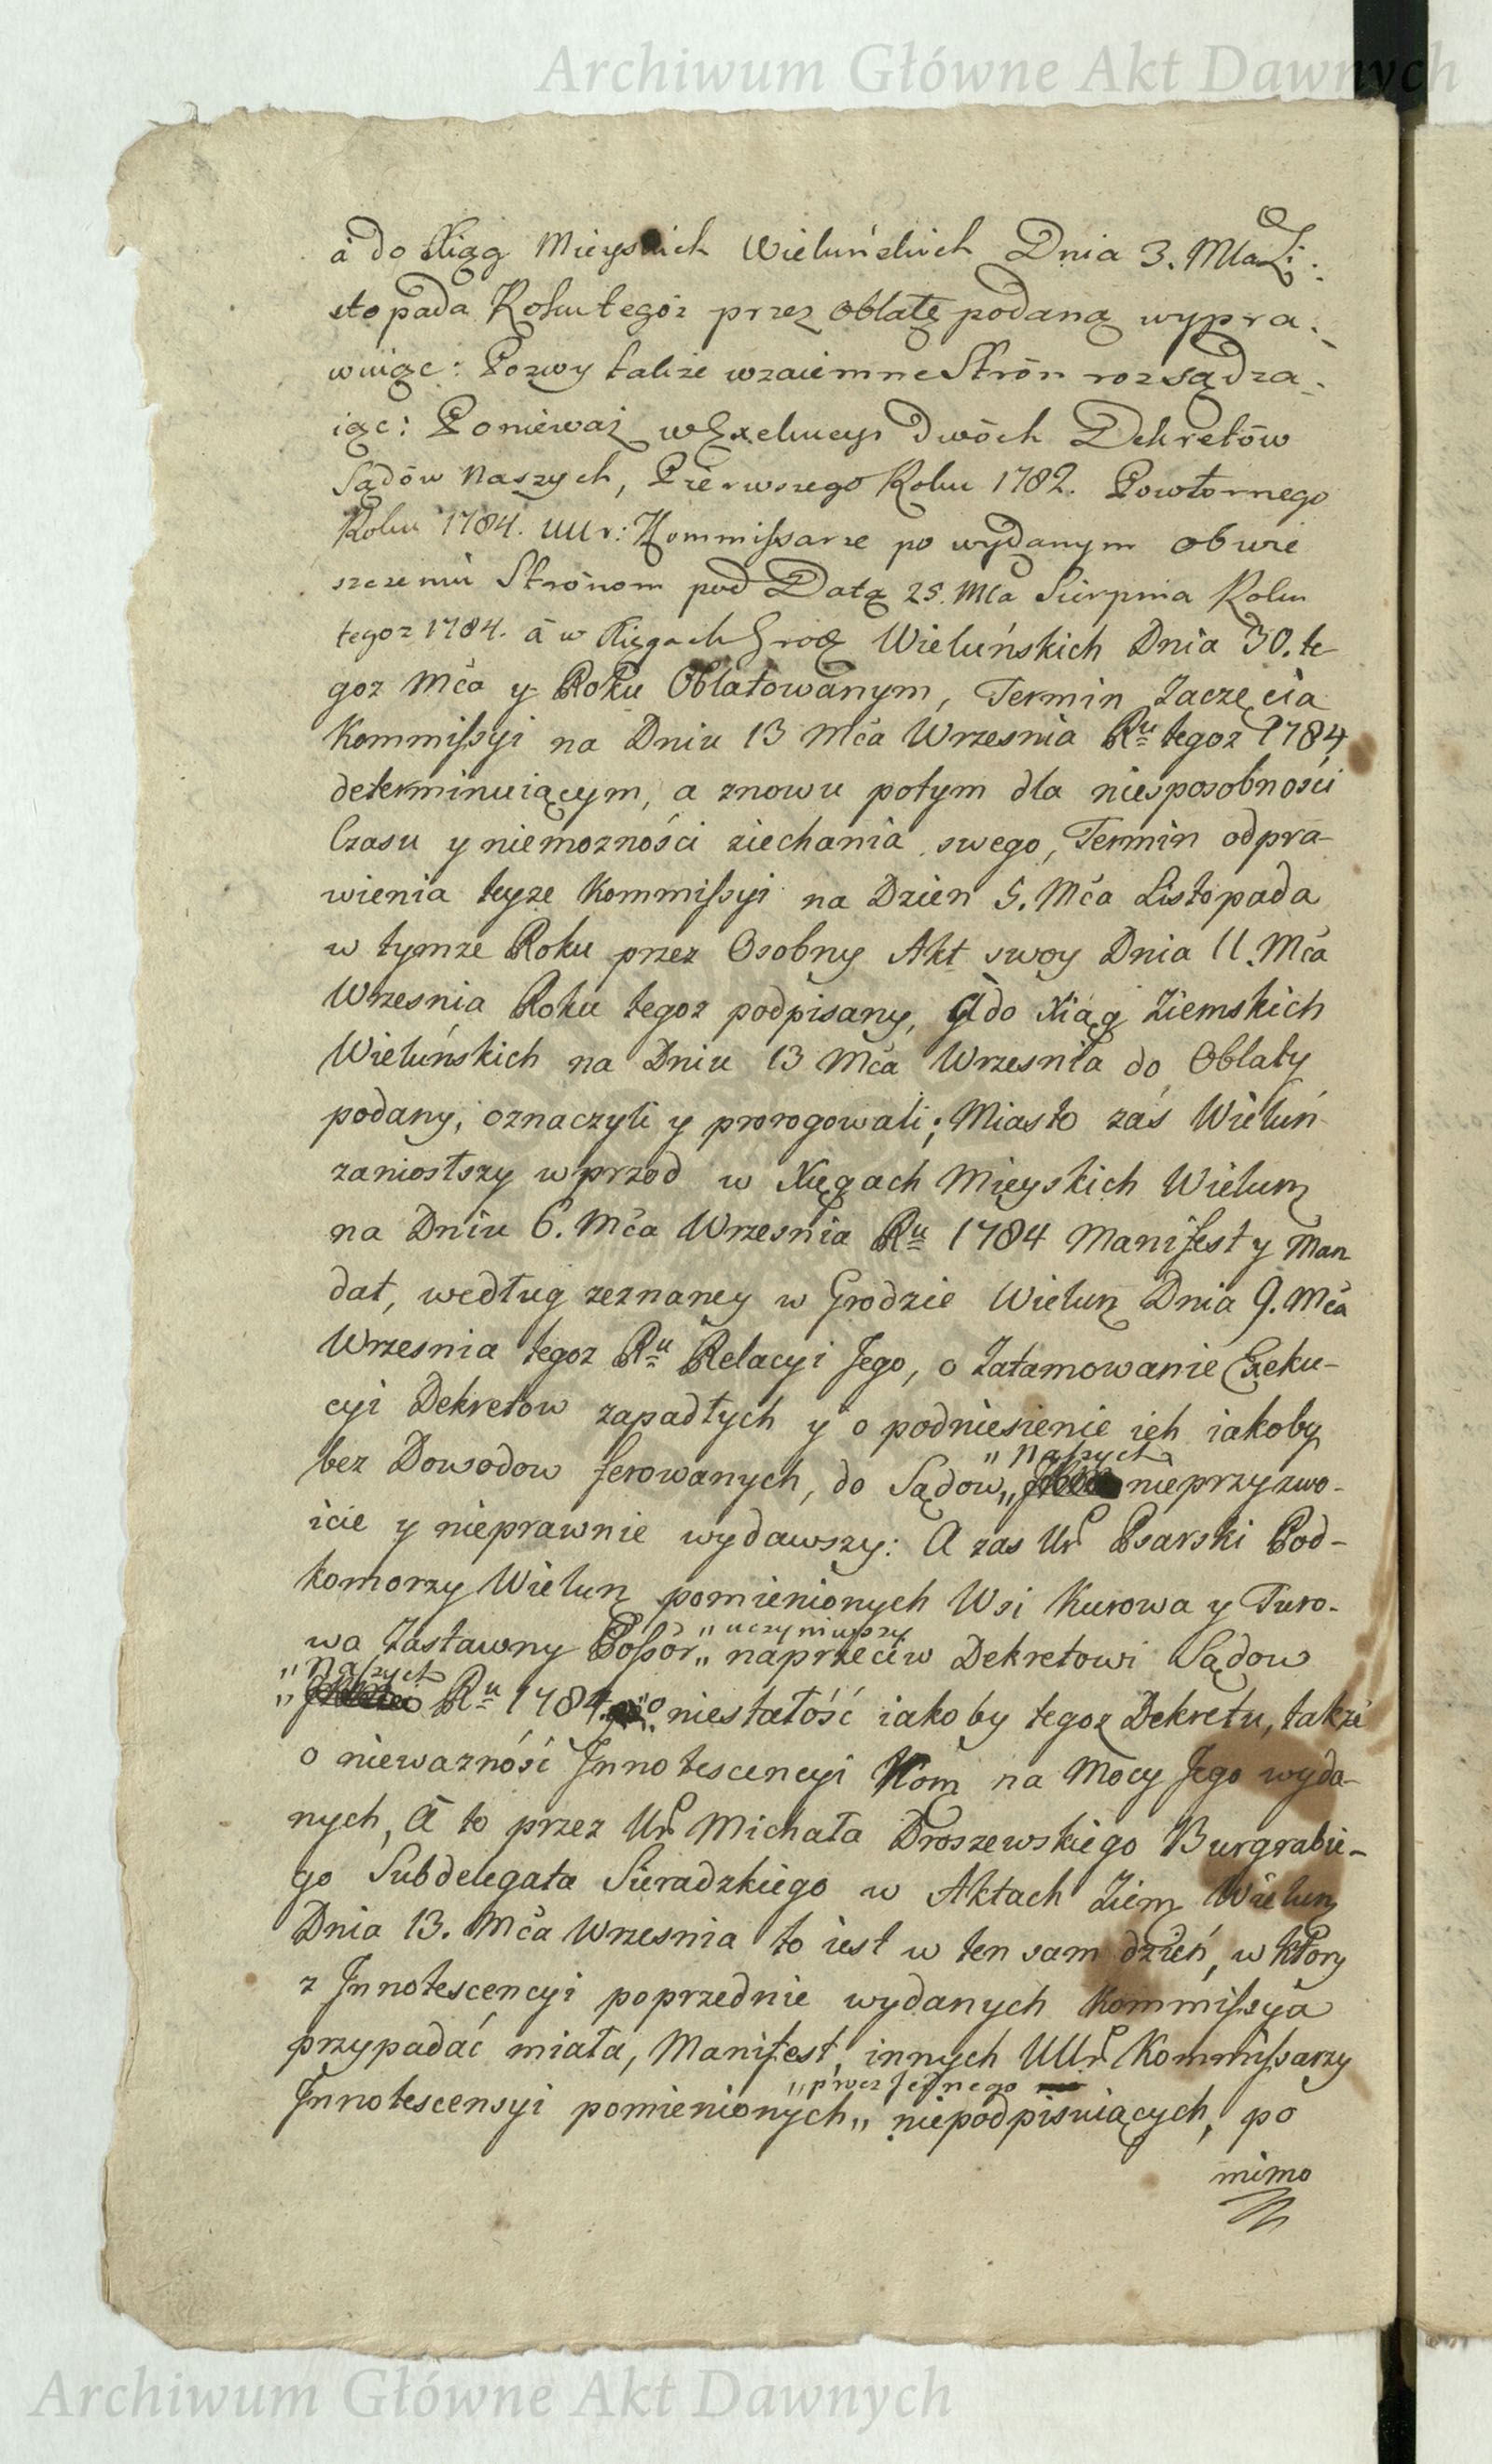 Archiwum Główne Akt Dawnych
à do Xiąg Mieyskich Wieluńskich Dnia 3. Mca Li:
stopada Roku tegoż przez Oblatę podaną wypra:
wuiąc: Pozwy także wzaiemne Strón rozsądza:
iąc: Ponieważ w Exekucyi dwóch Dekretów
Sądów Naszych, Pierwszego Roku 1782. Powtornego
Roku 1784. UUr: Kommissarze po wydanym obwie
szczeniu Strónom pod Datą 25. Mca Sierpnia Roku
tegoz 1784. à w Xięgach Grodz Wieluńskich Dnia 30. te-
goz Mca y Roku Oblatowanym, Termin Zaczęcia
Kommissyi na Dniu 13 Mca Wrzesnia Ru tegoz 1784
determinuiącym, a znowu potym dla niesposobności
Czasu y niemozności ziechania swego, Termin odpra-
wienia teyze Kommissyi na Dzien 5. Mca Listopada
w tymze Roku przez Osobny Akt swoy Dnia 11. Mca
Wrzesnia Roku tegoz podpisany, à do Xiąg Ziemskich
Wieluńskich na Dniu 13 Mca Wrzesnia do Oblaty
podany, oznaczyli y prorogowali; Miasto zaś Wieluń
zaniosłszy wprzod w Xięgach Mieyskich Wielun
na Dniu 6. Mca Wrzesnia Ru 1784 Manifest y Man
dat, według zeznaney w Grodzie Wielun Dnia 9. Mca
Wrzesnia tegoz Ru Relacyi Jego, o Zatamowanie Exeku-
cyi Dekretow zapadłych y o podniesienie ich iakoby
„Naszych
bez Dowodow ferowanych, do Sądow„ nieprzyzwo-
icie y nieprawnie wydawszy: A zas Ur Psarski Pod-
komorzy Wielun pomienionych Wsi Kurowa y Turo-
„uczyniwszy
wa Zastawny Possor„ naprzeciw Dekretowi Sądow
„Naszych
„ Ru 1784. o niestałość iakoby tegoz Dekretu, takze
o niewazność Innotescencyi Kom na Mocy Jego wyda-
nych, à to przez Ur Michała Droszewskiego Burgrabie-
go Subdelegata Sieradzkiego w Aktach Ziem Wielun
Dnia 13. Mca Wrzesnia to iest w ten sam dzień, w ktory
z Innotescencyi poprzednie wydanych Kommissya
przypadać miała, Manifest, innych UUr Kommissarzy
„przez Jednego
Innotescensyi pomienionych„ niepodpisuiących, po
mimo
Archiwum Główne Akt Dawnych